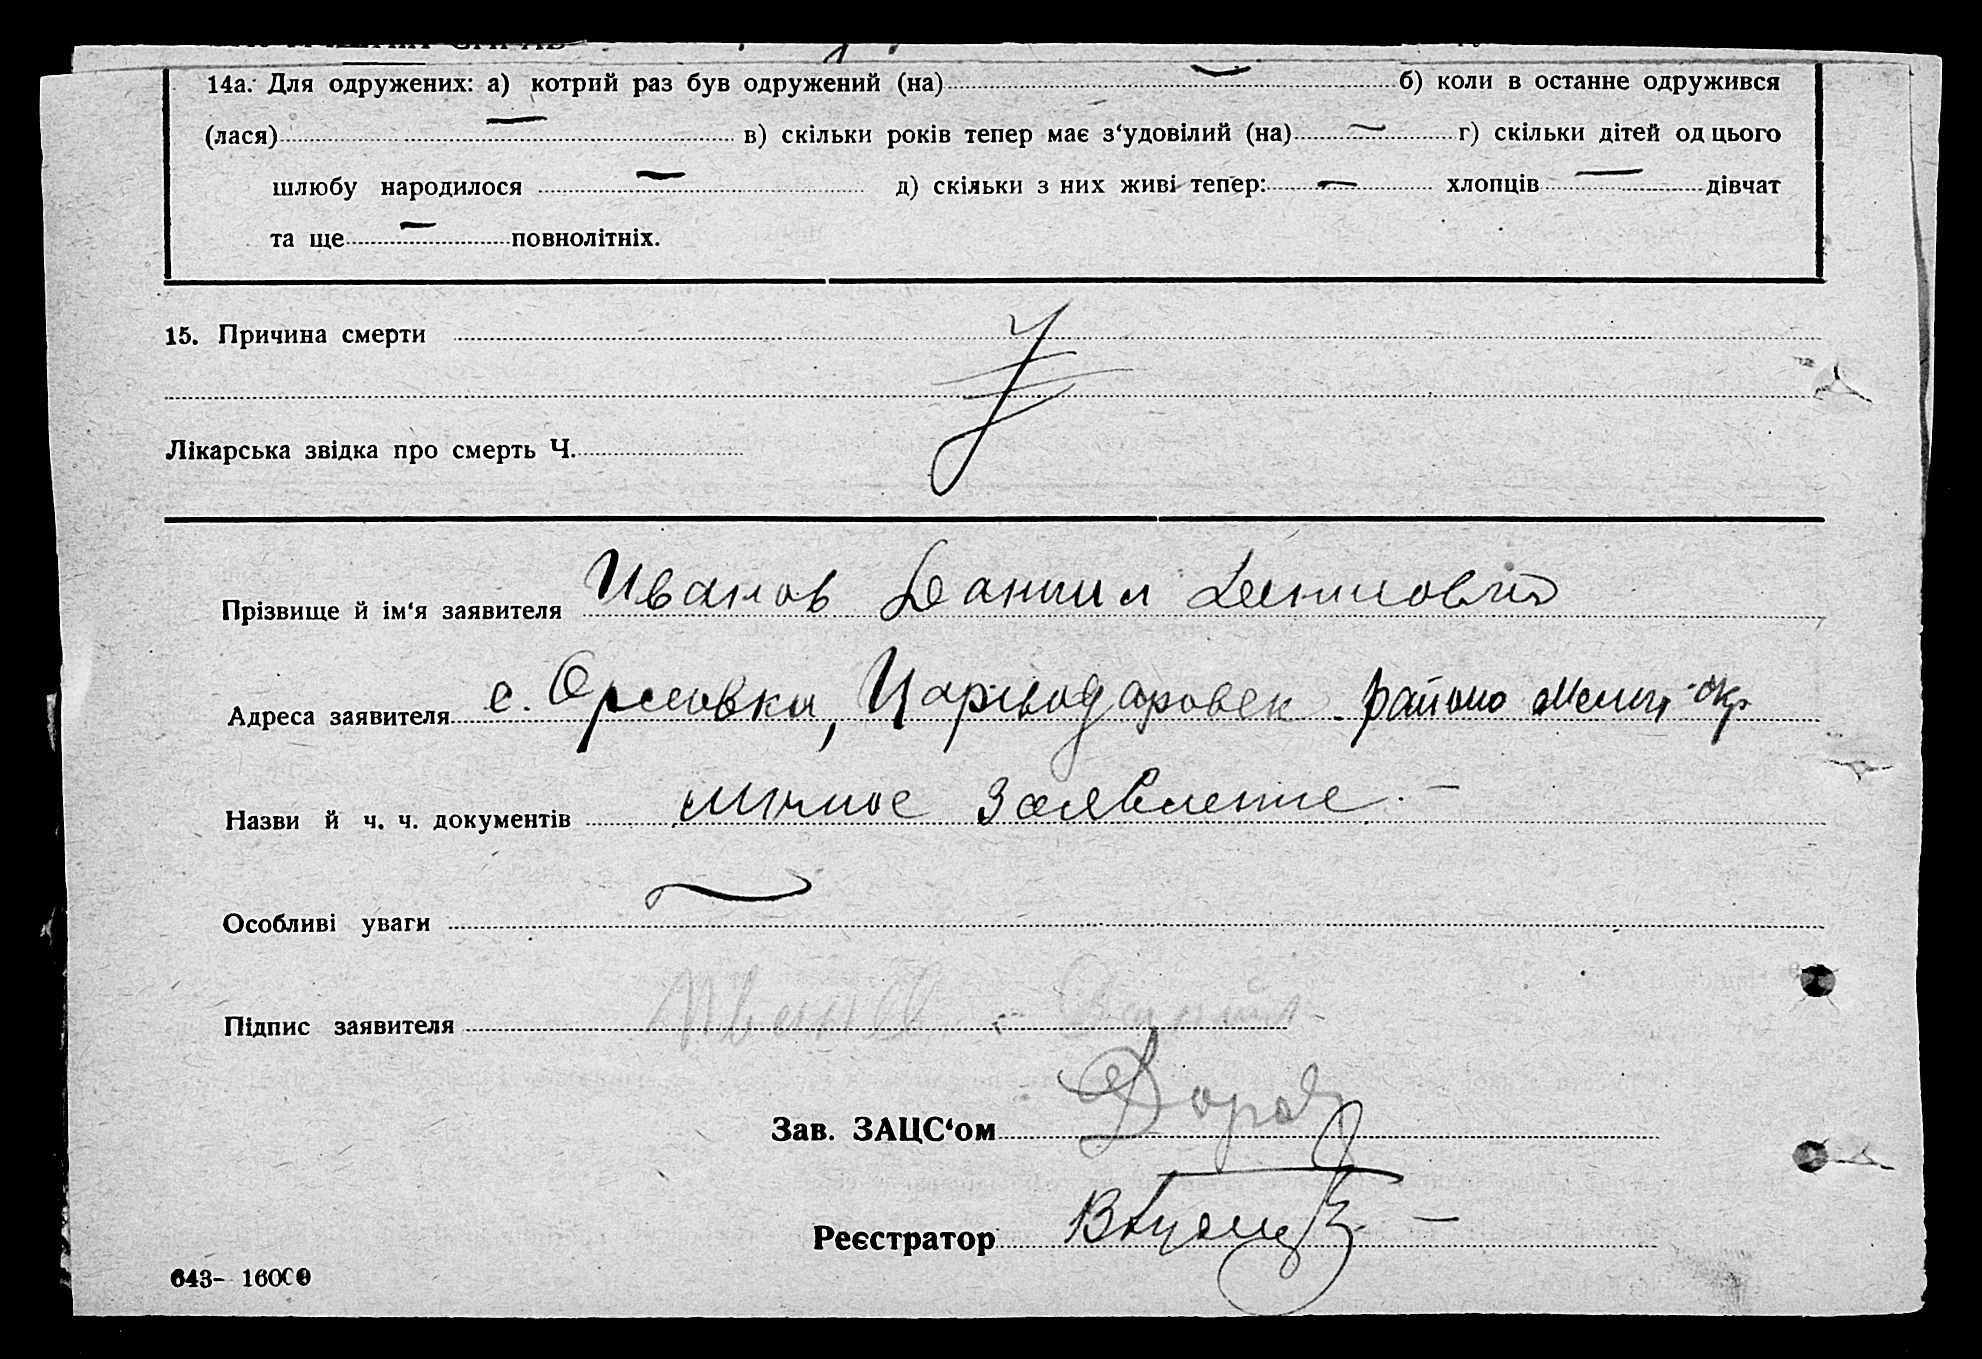 14а. Для одружених: а) котрий раз був одружений (на) — б) коли в останне одружився
(лася) — в) скільки років тепер має з‘удовілий (на) — г) скільки дітей од цього
шлюбу народилося — д) скільки з них живі тепер: — хлопців — дівчат
та ще — повнолітніх.
15. Причина смерти
Лікарська звідка про смерть Ч.
Прізвище й ім‘я заявителя Иванов Даниил Данилович
Адреса заявителя с. Орловка, района Мелит. окр.
Назви й ч. ч. документів личное заявление. —
Особливі уваги
Підпис заявителя Иванов Даниил
Зав. ЗАЦС‘ом
Реєстратор
643- 16000